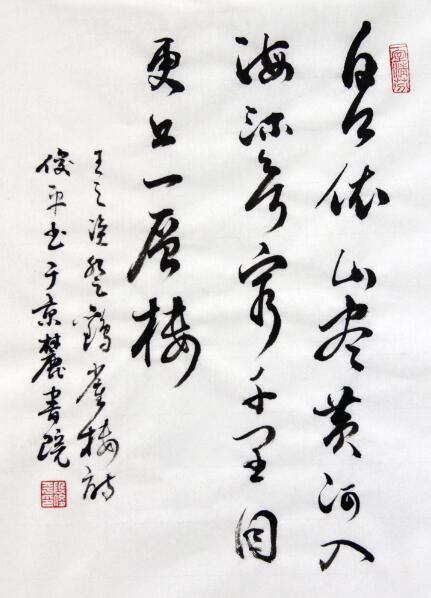 白日依山尽黄河入
海流欲穷千里目
更上一层楼
王之涣登鹳雀楼诗
俊平书于京麓書院